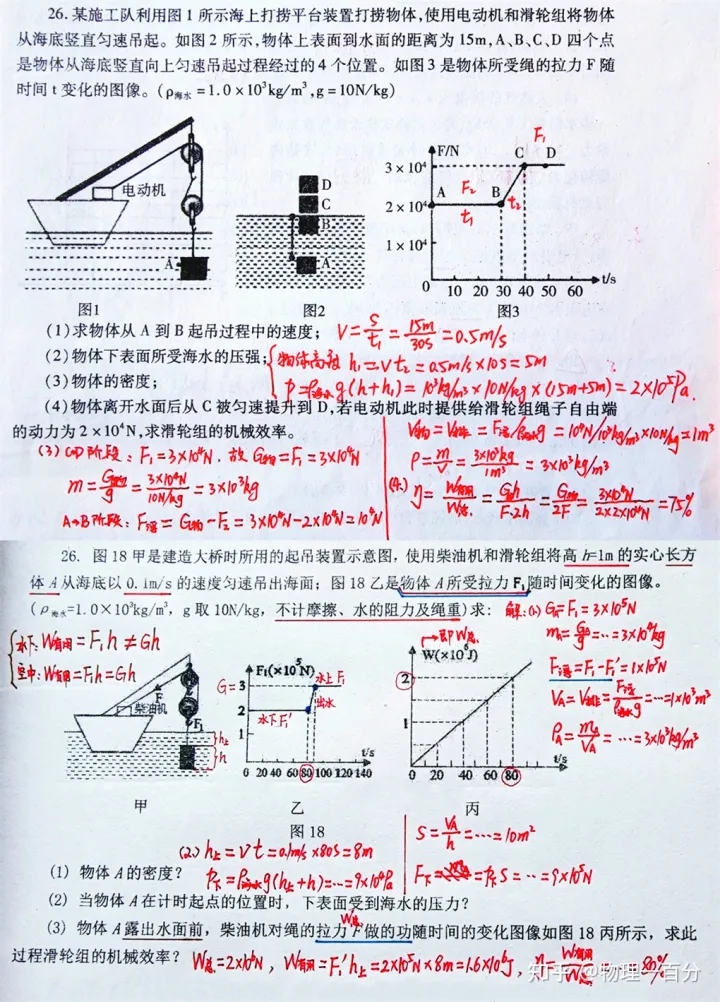 26.某施工队利用图1所示海上打捞平台装置打捞物体,使用电动机和滑轮组将物体
从海底竖直匀速吊起。如图2所示,物体上表面到水面的距离为15m,A、B、C、D四个点
是物体从海底竖直向上匀速吊起过程经过的4个位置。如图3是物体所受绳的拉力F随
时间t变化的图像。(ρ海水=1.0×10³kg/m³,g=10N/kg)
电动机
A
图1
D
C
B
A
图2
F/N
F₁
3×10⁴
C D
A F₂ B
2×10⁴
t₁ t₂
1×10⁴
0 10 20 30 40 50 60 t/s
图3
(1)求物体从A到B起吊过程中的速度; V=S/t₁=15m/30s=0.5m/s
(2)物体下表面所受海水的压强; 物体高h₁=vt₂=0.5m/s×10s=5m
P=ρ海水g(h+h₁)=10³kg/m³×10N/kg×(15m+5m)=2×10⁵Pa.
(3)物体的密度;
(4)物体离开水面后从C被匀速提升到D,若电动机此时提供给滑轮组绳子自由端
的动力为2×10⁴N,求滑轮组的机械效率。
(3) CD阶段:F₁=3×10⁴N.故G物=F₁=3×10⁴N
m=G物/g=3×10⁴N/10N/kg=3×10³kg
A→B阶段:F浮=G物-F₂=3×10⁴N-2×10⁴N=10⁴N
V物=V排=F浮/ρ海水g=10⁴N/10³kg/m³×10N/kg=1m³
ρ=m/V=3×10³kg/1m³=3×10³kg/m³
(4) η=W有用/W总=Gh/F·2h=G物/2F=3×10⁴N/2×2×10⁴N=75%
26. 图18甲是建造大桥时所用的起吊装置示意图,使用柴油机和滑轮组将高h=1m的实心长方
体A从海底以0.1m/s的速度匀速吊出海面;图18乙是物体A所受拉力F₁随时间变化的图像。
(ρ海水=1.0×10³kg/m³,g取10N/kg,不计摩擦、水的阻力及绳重)求:
解:(1) GA=F₁=3×10⁵N
mA=GA/g=…=3×10⁴kg
F浮=F₁-F₁'=1×10⁵N
VA=V排=F浮/ρ海水g=…=1×10³m³
ρA=mA/VA=…=3×10³kg/m³
水下:W有用=F₁h≠Gh
空中:W有用=F₁h=Gh
F
柴油机
F₁
h上
h
甲
F₁(×10⁵N)
水上F₁
G=3
出水
2
水下F₁'
1
0 20 40 60 80 100 120 140
t/s
乙
即W总
W(×10⁶J)
2
1
0 20 40 60 80
t/s
丙
图18
(2) h上=vt=0.1m/s×80s=8m
P下=ρ海水g(h上+h)=…=9×10⁴Pa
S=VA/h=…=10m²
F下=P下S=…=9×10⁵N
(1) 物体A的密度?
(2) 当物体A在计时起点的位置时,下表面受到海水的压力?
W总
(3) 物体A露出水面前,柴油机对绳的拉力F做的功随时间的变化图像如图18丙所示,求此
过程滑轮组的机械效率? W总=2×10⁶N,W有用=F₁'h=2×10⁵N×8m=1.6×10⁶J,η=W有用/W总=…=80%
知乎 @物理一百分